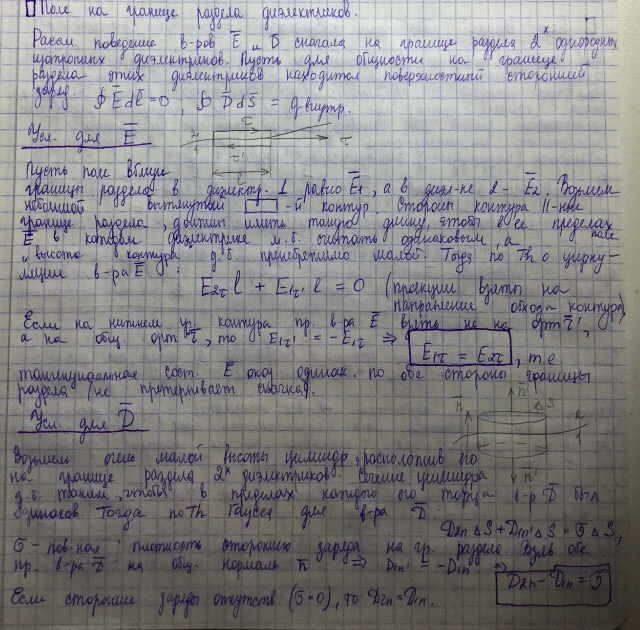 Поле на границе раздела диэлектриков.
Рассм. поведение в-ров E и D сначала на границе раздела 2ˣ однородных
изотропных диэлектриков. Пусть для общности на границе
раздела этих диэлектриков находится поверхностный сторонний
заряд. ∮E̅dl̅=0, ∮D̅dS̅ = qвнутр.
Усл. для E̅
τ̅
2
1
τ̅'
l
τ
Пусть поле вблизи
границы раздела в диэлектр. 1 равно E̅₁, а в диэл-ке 2 - E̅₂. Возьмем
небольшой вытянутый ▭-й контур. Стороны контура ||-ные
границе раздела, должны иметь такую длину, чтобы в ее пределах поле
E̅ в каждом диэлектрике м.б. считать одинаковым, а
"высота" контура д.б. пренебрежимо малой. Тогда по Th о цирку-
ляции в-ра E̅:
E₂τ l + E₁τ' l = 0 (проекции взяты на
направлении обхода контура)
Если на нижнем уч. контура пр. в-ра E̅ взять не на орт τ̅',
а на общ. орт τ̅, то E₁τ' = -E₁τ ⇒ E₁τ = E₂τ, т.е
тангенциальная сост. E оказ. одинак. по обе стороны границы
раздела (не претерпевает скачка).
Усл. для D̅
n̅
n̅
ΔS
2
1
n̅'
Возьмем очень малой высоты цилиндр, расположив его
на границе раздела 2ˣ диэлектриков. Сечение цилиндра
д.б. таким, чтобы в пределах каждого его торца в-р D̅ был
одинаков. Тогда по Th Гаусса для в-ра D̅
D₂n ΔS + D₁n' ΔS = σ ΔS,
σ - пов-ная плотность стороннего заряда на гр. раздела. Взяв обе
пр. в-ра D̅ на общ. нормаль n̅ ⇒ D₁n' = -D₁n ⇒ D₂n - D₁n = σ
Если сторонние заряды отсутств (σ=0), то D₂n = D₁n.